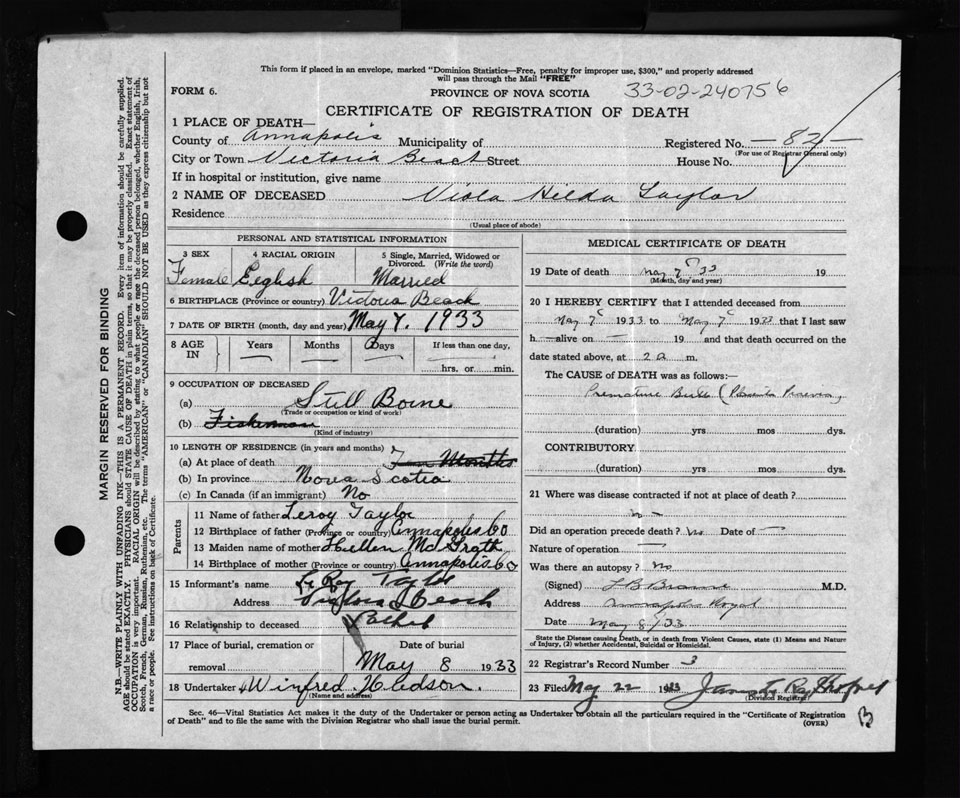 This form if placed in an envelope, marked "Dominion Statistics—Free, penalty for improper use, $300," and properly addressed
will pass through the Mail "FREE"
FORM 6.
PROVINCE OF NOVA SCOTIA
33-02-240756
CERTIFICATE OF REGISTRATION OF DEATH
1 PLACE OF DEATH—
County of Annapolis Municipality of Registered No. 82
(For use of Registrar General only)
City or Town Victoria Beach Street House No.
If in hospital or institution, give name
2 NAME OF DECEASED Viola Hilda Taylor
Residence
(Usual place of abode)
PERSONAL AND STATISTICAL INFORMATION
3 SEX 4 RACIAL ORIGIN 5 Single, Married, Widowed or Divorced. (Write the word)
Female English Married
6 BIRTHPLACE (Province or country) Victoria Beach
7 DATE OF BIRTH (month, day and year) May 7. 1933
8 AGE IN Years Months Days If less than one day,
hrs. or min.
9 OCCUPATION OF DECEASED
(a) Still Borne
(Trade or occupation or kind of work)
(b) Fisherman
(Kind of industry)
10 LENGTH OF RESIDENCE (in years and months)
(a) At place of death Months
(b) In province Nova Scotia
(c) In Canada (if an immigrant) No
Parents
11 Name of father Leroy Taylor
12 Birthplace of father (Province or country) Annapolis Co
13 Maiden name of mother Hellen McGrath
14 Birthplace of mother (Province or country) Annapolis Co
15 Informant's name LeRoy Taylor
Address Victoria Beach
16 Relationship to deceased Father
17 Place of burial, cremation or removal Date of burial
May 8 1933
18 Undertaker Winfred Hudson.
(Name and address)
MEDICAL CERTIFICATE OF DEATH
19 Date of death May 7 33 19
(Month, day and year)
20 I HEREBY CERTIFY that I attended deceased from
May 7 1933 to May 7 1933 that I last saw
h alive on — 19 and that death occurred on the
date stated above, at 2 a m.
The CAUSE of DEATH was as follows:—
Premature Birth (Placenta Praevia)
(duration) yrs mos dys.
CONTRIBUTORY
(duration) yrs mos dys.
21 Where was disease contracted if not at place of death?
Did an operation precede death? No Date of —
Nature of operation —
Was there an autopsy? No
(Signed) L B Braine M.D.
Address Annapolis Royal
Date May 8/33
State the Disease causing Death, or in death from Violent Causes, state (1) Means and Nature
of Injury, (2) whether Accidental, Suicidal or Homicidal.
22 Registrar's Record Number 3
23 Filed May 22 1933
(Division Registrar)
Sec. 46—Vital Statistics Act makes it the duty of the Undertaker or person acting as Undertaker to obtain all the particulars required in the "Certificate of Registration
of Death" and to file the same with the Division Registrar who shall issue the burial permit.
(OVER)
B
MARGIN RESERVED FOR BINDING
N.B.—WRITE PLAINLY WITH UNFADING INK—THIS IS A PERMANENT RECORD. Every item of information should be carefully supplied.
AGE should be stated EXACTLY. PHYSICIANS should STATE CAUSE OF DEATH in plain terms, so that it may be properly classified. Exact statement of
OCCUPATION is very important. RACIAL ORIGIN will be described by stating to what people or race the deceased person belonged, whether English, Irish,
Scotch, French, German, Russian, Ruthenian, etc. The terms "AMERICAN" or "CANADIAN" SHOULD NOT BE USED as they express citizenship but not
a race or people. See instructions on back of Certificate.